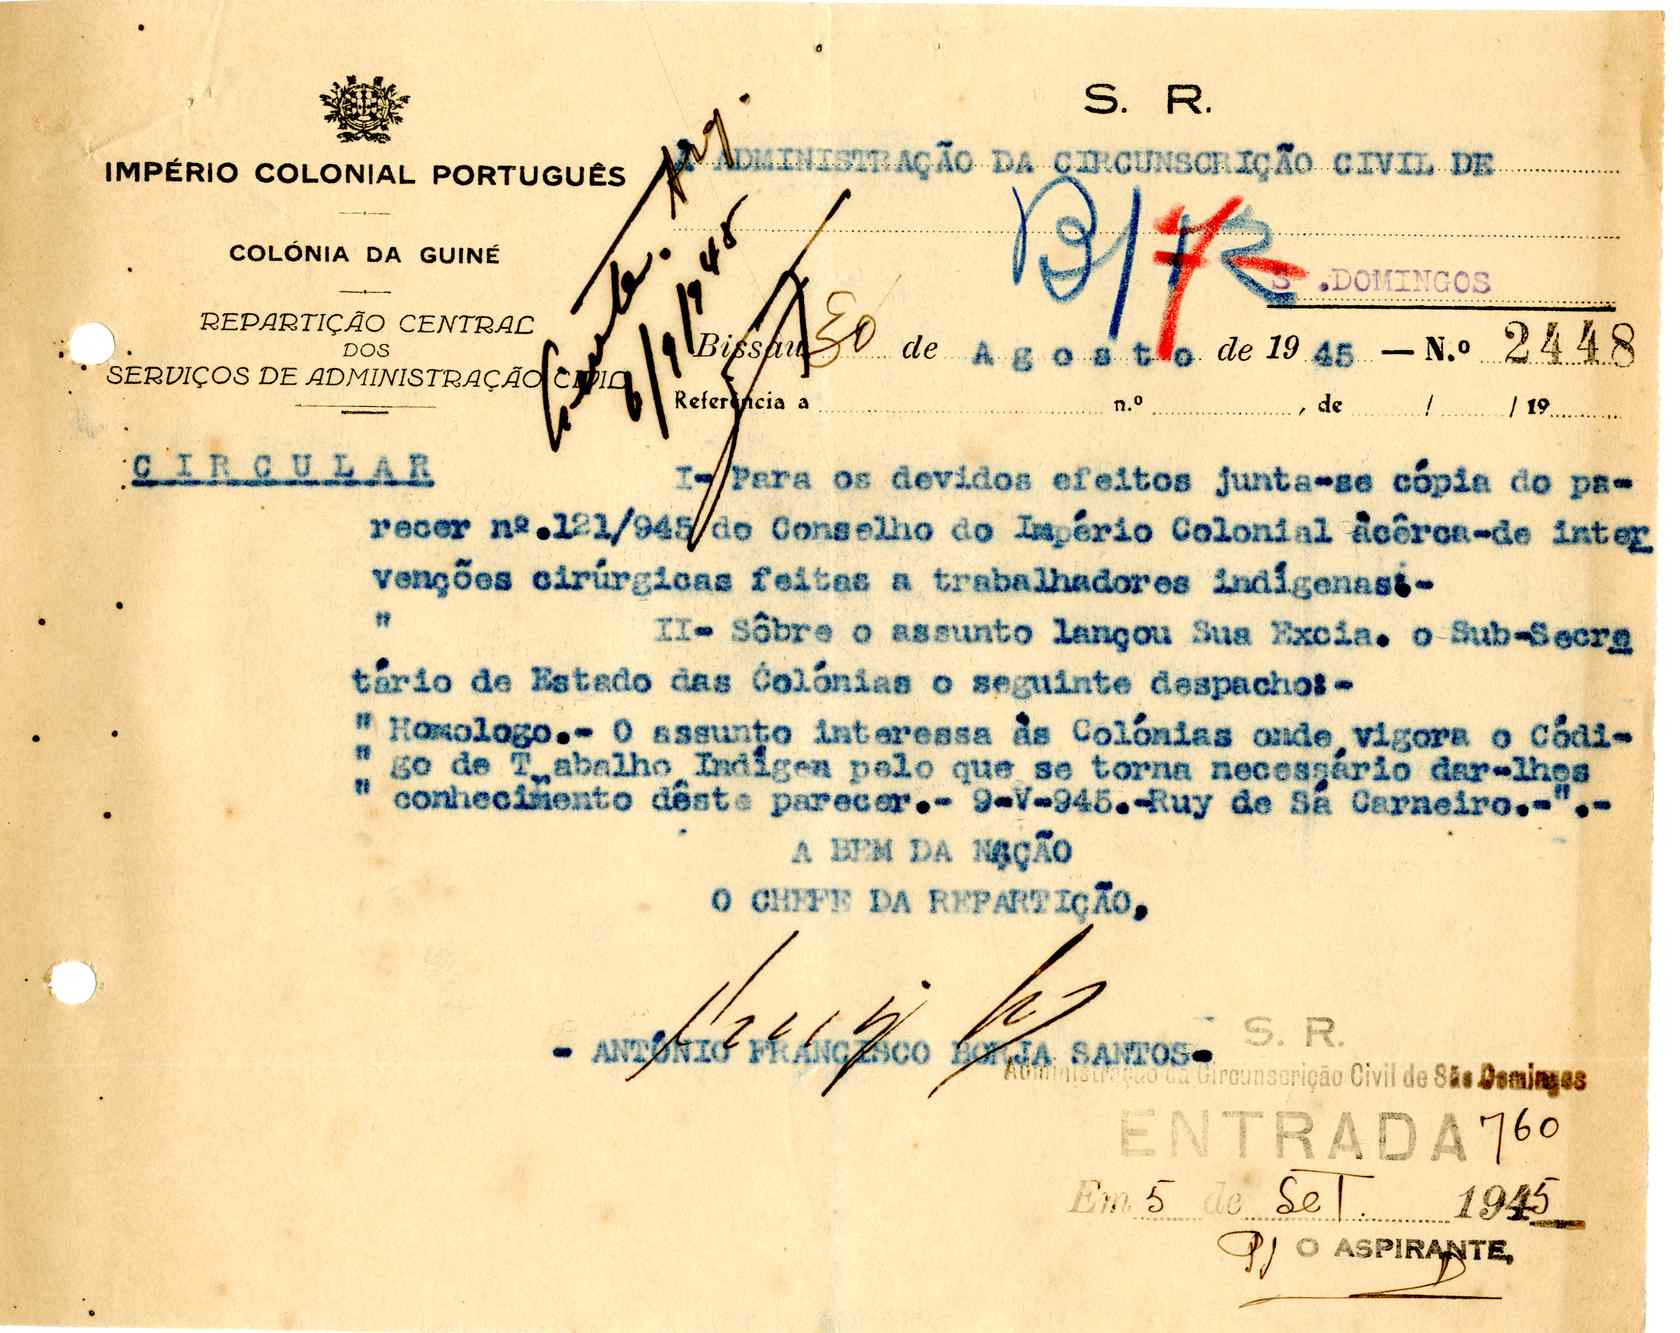 S. R.
IMPÉRIO COLONIAL PORTUGUÊS
COLÓNIA DA GUINÉ
REPARTIÇÃO CENTRAL
DOS
SERVIÇOS DE ADMINISTRAÇÃO CIVIL
À ADMINISTRAÇÃO DA CIRCUNSCRIÇÃO CIVIL DE
B/
S. DOMINGOS
6/9/945
Bissau 30 de Agosto de 1945 — N.º 2448
Referência a n.º , de / / 19
CIRCULAR
I- Para os devidos efeitos junta-se cópia do pa-
recer nº.121/945 do Conselho do Império Colonial àcêrca-de inter
venções cirúrgicas feitas a trabalhadores indígenas:-
" II- Sôbre o assunto lançou Sua Excia. o Sub-Secre
tário de Estado das Colónias o seguinte despacho:-
" Homologo.- O assunto interessa às Colónias onde vigora o Códi-
" go de Trabalho Indígena pelo que se torna necessário dar-lhes
" conhecimento dêste parecer.- 9-V-945.-Ruy de Sá Carneiro.-".-
A BEM DA NAÇÃO
O CHEFE DA REPARTIÇÃO,
- ANTÓNIO FRANCISCO BORJA SANTOS-
S. R.
Administração da Circunscrição Civil de São Domingos
ENTRADA 760
Em 5 de Set. 1945
P/ O ASPIRANTE,